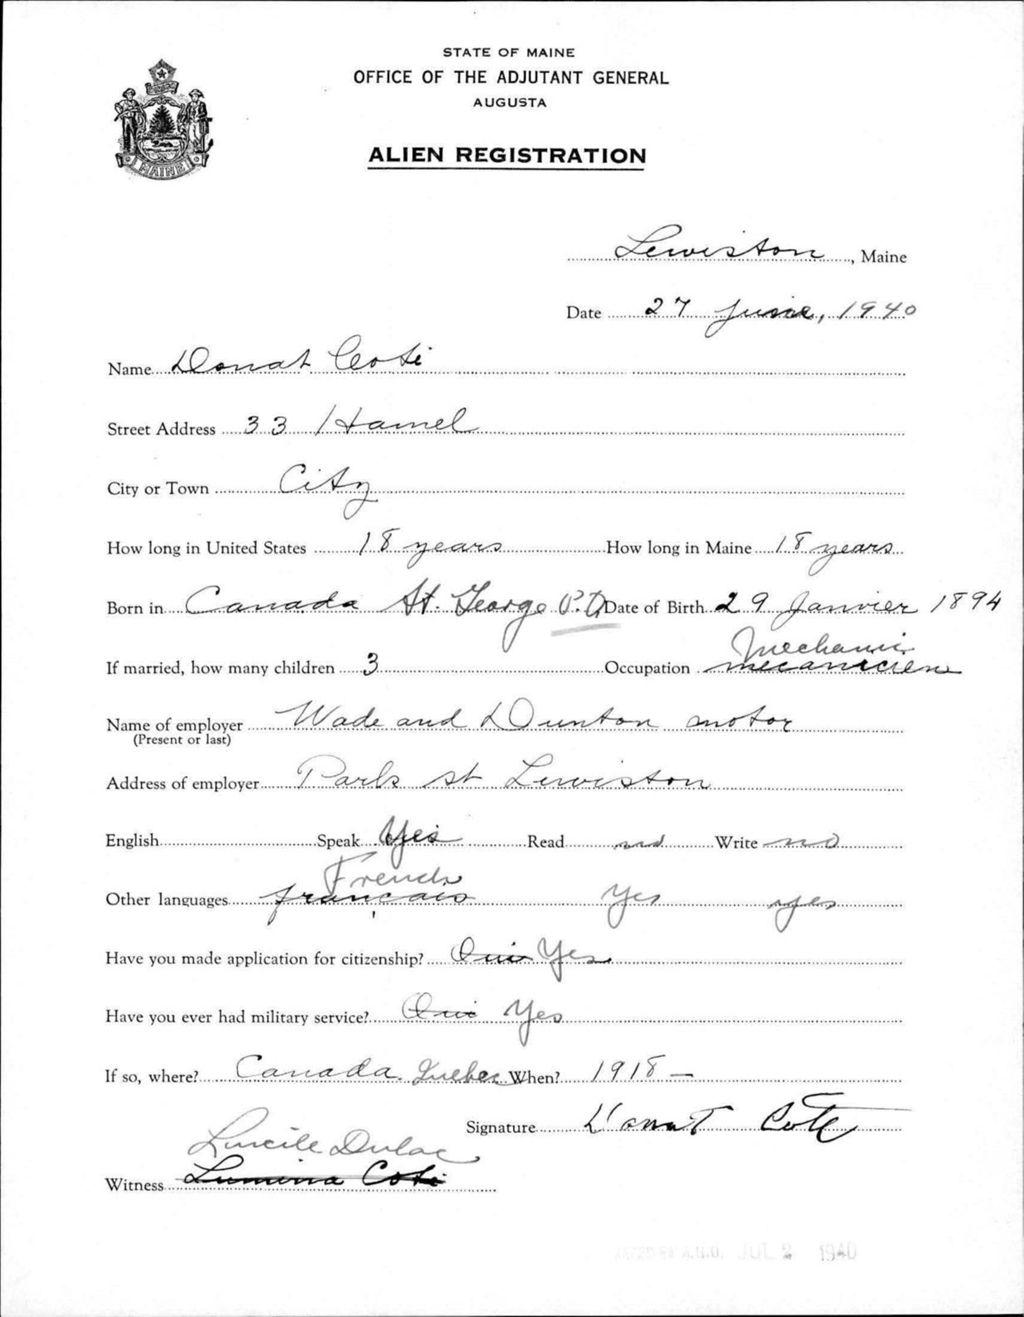 STATE OF MAINE
OFFICE OF THE ADJUTANT GENERAL
AUGUSTA
ALIEN REGISTRATION
MAINE
Lewiston, Maine
Date 27 June, 1940
Name Donat Coté
Street Address 33 Hamel
City or Town City
How long in United States 18 years How long in Maine 18 years
Born in Canada St. George P.Q. Date of Birth 29 Janvier 1894
Mechanic
If married, how many children 3 Occupation mecanicien
Name of employer Wade and Dunton motor
(Present or last)
Address of employer Park st Lewiston
English Speak Yes Read no Write no
French
Other languages français Yes yes
Have you made application for citizenship? Oui Yes
Have you ever had military service? Oui Yes
If so, where? Canada Quebec When? 1918 -
Signature Donat Cote
Lucille Dulac
Witness Lumina Coté
JUL 2 1940